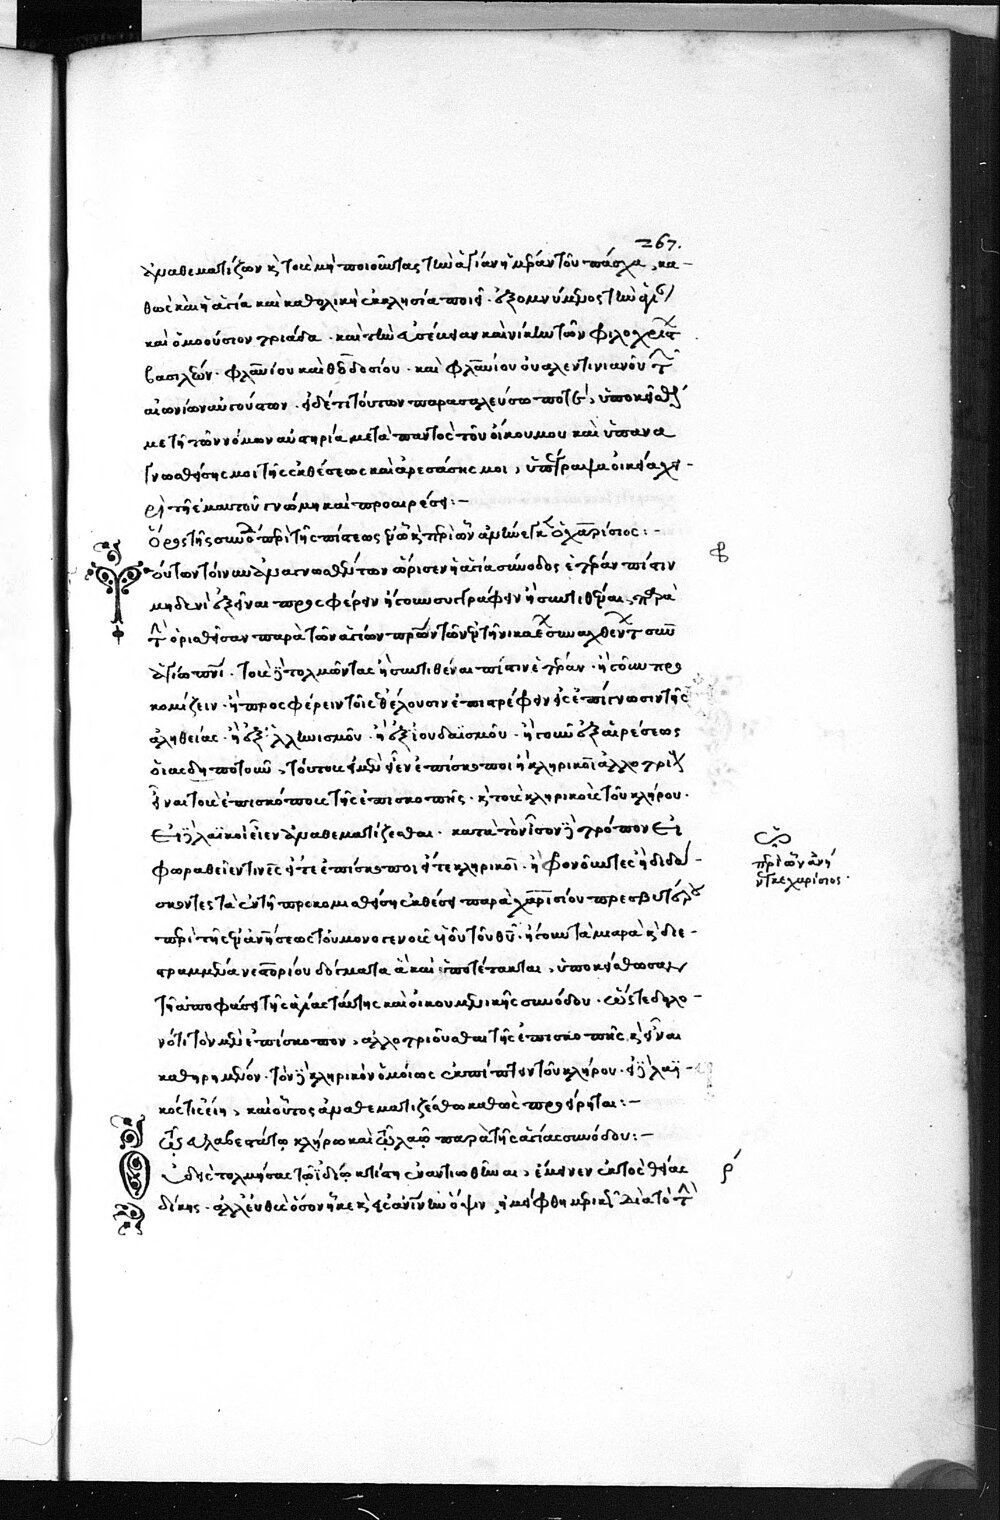 267.
ἀναθεματίζων κ τοὺς μὴ ποιοῦντας τὴν ἁγίαν ἡμέραν τοῦ πάσχα, κα-
θὼς καὶ ἡ ἁγία καὶ καθολικὴ ἐκκλησία ποιεῖ. ἐξομνύμενος τὴν ἁγί
καὶ ὁμοούσιον τριάδα. καὶ τὴν εὐσέβειαν καὶ νίκην τῶν φιλοχρίστ
βασιλέων. φλαυίου καὶ θεοδοσίου. καὶ φλαυίου οὐαλεντινιανοῦ τ
αἰωνίων αὐγούστων. εἰ δέ τι τούτων παρασαλεύσω ποτέ, ὑποκείσθ
με τῇ τῶν νόμων αὐστηρίᾳ μετὰ παντὸς τοῦ οἴκου μου καὶ ὑπανα
γνωσθείσης μοι τῆς ἐκθέσεως καὶ ἀρεσάσης μοι, ὑπέγραψα οἰκείᾳ χει-
ρὶ τῇ ἐμαυτοῦ γνώμῃ καὶ προαιρέσει:-
ὅρος τῆς συνόδ περὶ τῆς πίστεως ἐν ᾧ κ περὶ ὧν ἀνήνεγκεν ὁ χαρίσιος:-
Τούτων τοίνυν ἀναγνωσθέντων ὥρισεν ἡ ἁγία σύνοδος ἑτέραν πίστιν
μηδενὶ ἐξεῖναι προσφέρειν ἤγουν συγγράφειν ἢ συντιθέναι, παρὰ
τ ὁρισθεῖσαν παρὰ τῶν ἁγίων πρων τῶν ἐν τῇ νικαέ συναχθέντ σὺν
ἁγίῳ πνι. τοὺς δὲ τολμῶντας ἢ συντιθέναι πίστιν ἑτέραν. ἤγουν προ
κομίζειν. ἢ προσφέρειν τοῖς θέλουσιν ἐπιστρέφειν εἰς ἐπίγνωσιν τῆς
ἀληθείας. ἢ ἐξ ἑλληνισμοῦ. ἢ ἐξ ἰουδαϊσμοῦ. ἤγουν ἐξ αἱρέσεως
οἵας δήποτουν, τούτους εἰ μὲν εἶεν ἐπίσκοποι ἢ κληρικοὶ ἀλλοτρί
εἶναι τοὺς ἐπισκόπους τῆς ἐπισκοπῆς. κ τοὺς κληρικοὺς τοῦ κλήρου.
Εἰ δὲ λαϊκοὶ εἶεν ἀναθεματίζεσθαι. κατὰ τὸν ἴσον δὲ τρόπον Εἰ
φωραθεῖεν τινὲς εἴτε ἐπίσκοποι εἴτε κληρικοὶ. ἢ φρονοῦντες ἢ διδά-
σκοντες τὰ ἐν τῇ προκομισθείσῃ ἐκθέσει παρὰ χαρισίου πρεσβυτέρου
περὶ τῆς ἐνανήσεως τοῦ μονογενοῦς υἱοῦ τοῦ θυ. ἤγουν τὰ μιαρὰ κ διε-
στραμμένα νεστορίου δόγματα ἃ καὶ ὑποτέτακται, ὑποκείσθωσαν
τῇ ἀποφάσει τῆς ἁγίας ταύτης καὶ οἰκουμενικῆς συνόδου. ὥστε δηλο-
νότι τὸν μὲν ἐπίσκοπον, ἀλλοτριοῦσθαι τῆς ἐπισκοπῆς κ εἶναι
καθηρημένον. τὸν δὲ κληρικὸν ὁμοίως ἐκπίπτειν τοῦ κλήρου. εἰ δὲ λαϊ-
κός τις εἴη, καὶ οὗτος ἀναθεματιζέσθω καθὼς προείρηται:-
Ὡς ἐλαβε ταύτῳ κλήρῳ καὶ ᾧ λαῷ παρὰ τῆς ἁγίας συνόδου:-
Οὐδεὶς τολμήσας τῷ ἰδίῳ κτίστῃ ἐναντιωθῆναι, ἔμεινεν ἐκτὸς θείας
δίκης. ἀλλ' εὐθὺς ὅσον ἧκε κ εἰς αὐτὴν τὴν ὄψιν, ἠμείφθη μερικῇ διὰ τὸ τ
Περὶ ὧν ἀνή
νεγκε χαρίσιος.
ρ